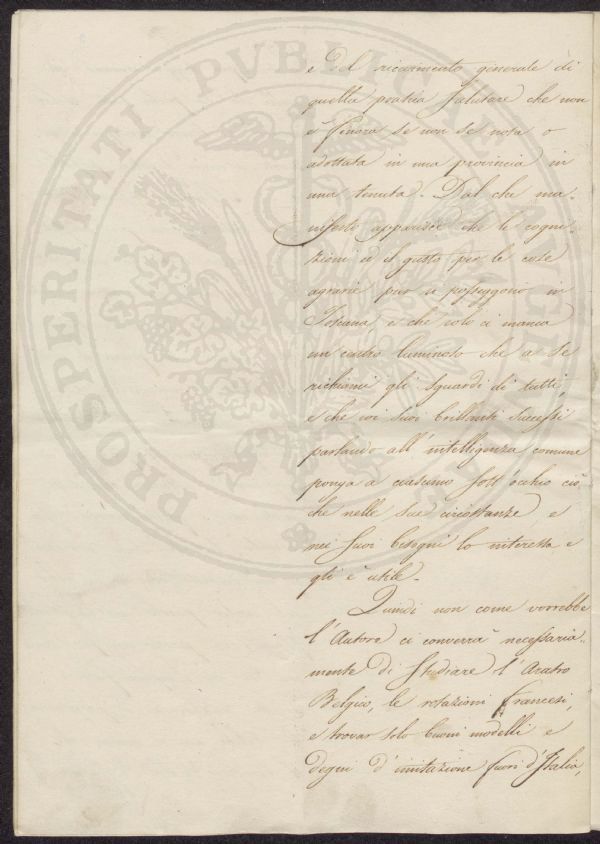 e del ricevimento generale di
quella pratica salutare che non
è finora se non se nota o
adottata in una provincia in
una tenuta. Dal che ma-
nifesto apparisce che le cogni-
zioni e il gusto per le cose
agrarie pur si posseggono in
Toscana, e che solo ci manca
un centro luminoso che a se
richiami gli sguardi di tutti,
e che coi suoi brillanti successi
parlando all'intelligenza comune
ponga a ciascuno sott'occhio ciò
che nelle sue circostanze e
nei suoi bisogni lo interessa e
gli è utile.
Quindi non come vorrebbe
l'Autore ci converrà necessaria-
mente di studiare l'Aratro
Belgico, le rotazioni Francesi,
e trovar solo buoni modelli e
degni d'imitazione fuori d'Italia,
PROSPERITATI PVBLICAE AVGE